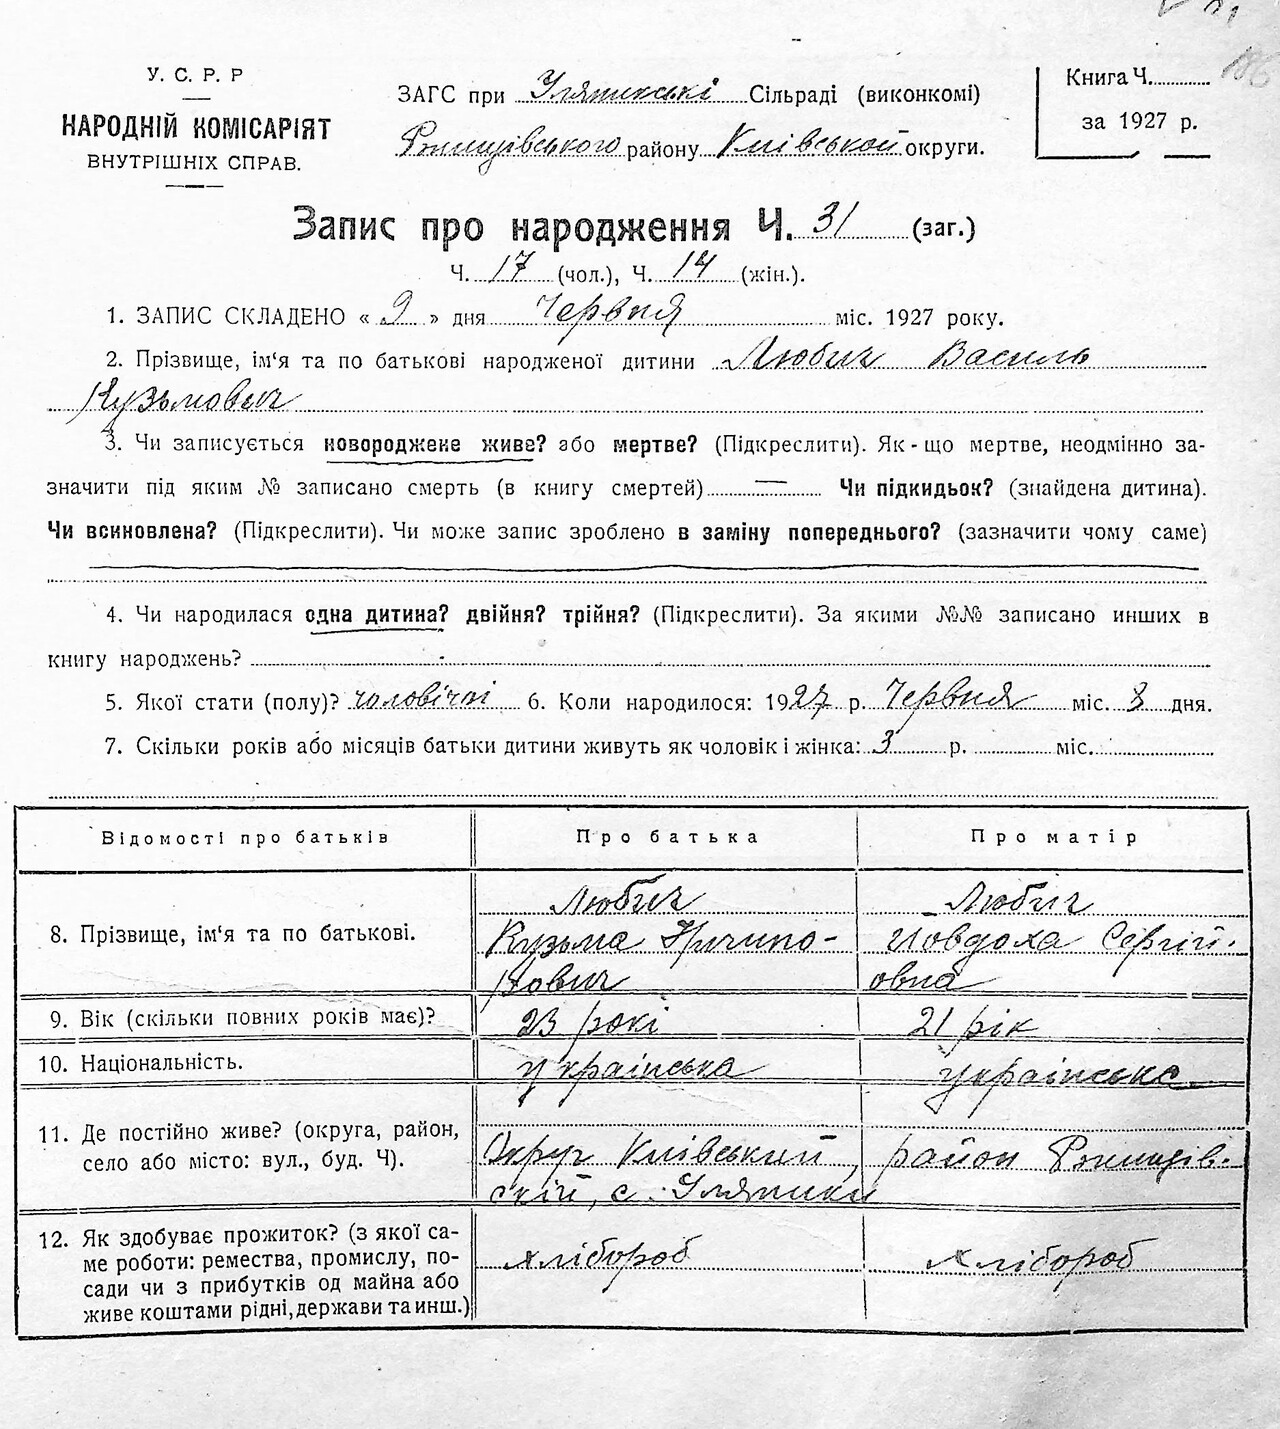 У. С. Р. Р
НАРОДНІЙ КОМІСАРІЯТ
ВНУТРІШНІХ СПРАВ.
ЗАГС при Уляникські Сільраді (виконкомі)
Ржищівського району Київської округи.
Книга Ч.
за 1927 р.
106
Запис про народження Ч. 31 (заг.)
Ч. 17 (чол.), Ч. 14 (жін.).
1. ЗАПИС СКЛАДЕНО « 9 » дня Червня міс. 1927 року.
2. Прізвище, ім‘я та по батькові народженої дитини Любич Василь
Кузьмович
3. Чи записується новороджене живе? або мертве? (Підкреслити). Як - що мертве, неодмінно за-
значити під яким № записано смерть (в книгу смертей) — Чи підкидьок? (знайдена дитина).
Чи всиновлена? (Підкреслити). Чи може запис зроблено в заміну попереднього? (зазначити чому саме)
4. Чи народилася одна дитина? двійня? трійня? (Підкреслити). За якими №№ записано инших в
книгу народжень?
5. Якої стати (полу)? чоловічої 6. Коли народилося: 1927 р. Червня міс. 8 дня.
7. Скільки років або місяців батьки дитини живуть як чоловік і жінка: 3 р. міс.
Відомості про батьків Про батька Про матір
8. Прізвище, ім‘я та по батькові.
Любич
Кузьма Ничипо-
рович
Любич
Иовдоха Сергій-
овна
9. Вік (скільки повних років має)? 23 рокі 21 рік
10. Національність. українська українська
11. Де постійно живе? (округа, район,
село або місто: вул., буд. Ч).
Округ Київський, район Ржищів-
ский, с. Уляники
12. Як здобуває прожиток? (з якої са-
ме роботи: ремества, промислу, по-
сади чи з прибутків од майна або
живе коштами рідні, держави та инш.)
хлібороб хлібороб